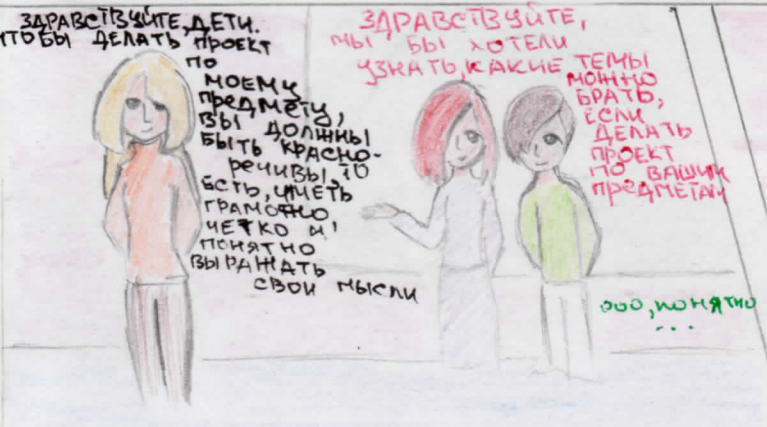 ЗДРАВСТВУЙТЕ, ДЕТИ.
ЧТОБЫ ДЕЛАТЬ ПРОЕКТ
ПО
МОЕМУ
ПРЕДМЕТУ,
ВЫ ДОЛЖНЫ
БЫТЬ КРАСНО-
РЕЧИВЫ, ТО
ЕСТЬ, УМЕТЬ
ГРАМОТНО,
ЧЕТКО И
ПОНЯТНО
ВЫРАЖАТЬ
СВОИ МЫСЛИ
ЗДРАВСТВУЙТЕ,
МЫ БЫ ХОТЕЛИ
УЗНАТЬ, КАКИЕ ТЕМЫ
МОЖНО
БРАТЬ,
ЕСЛИ
ДЕЛАТЬ
ПРОЕКТ
ПО ВАШИМ
ПРЕДМЕТАМ
ООО, ПОНЯТНО
...